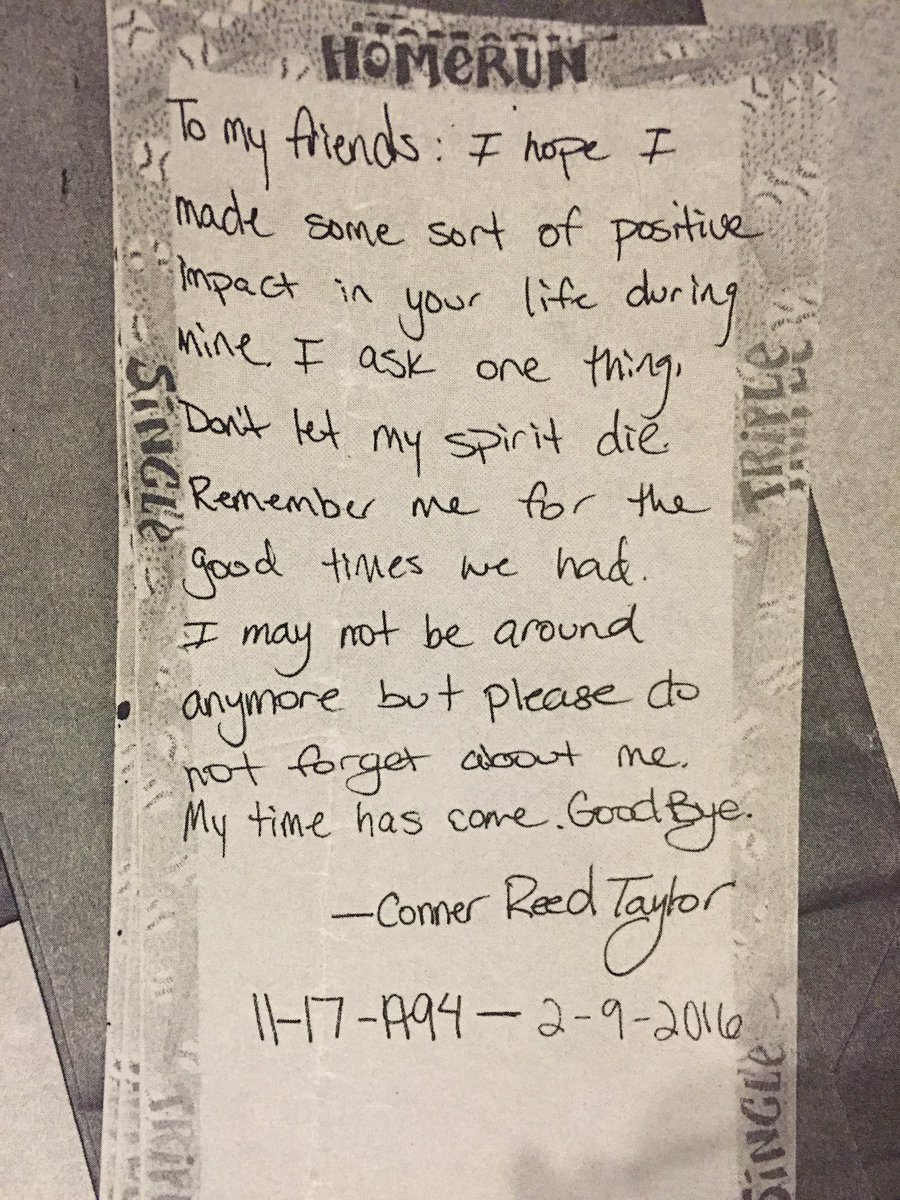 HOMERUN
To my friends: I hope I
made some sort of positive
impact in your life during
mine. I ask one thing,
Don't let my spirit die.
Remember me for the
good times we had.
I may not be around
anymore but please do
not forget about me.
My time has come. Good Bye.
—Conner Reed Taylor
11-17-1994 — 2-9-2016
SiNGLe
TRiPLe
TRiPL
SiNGLe